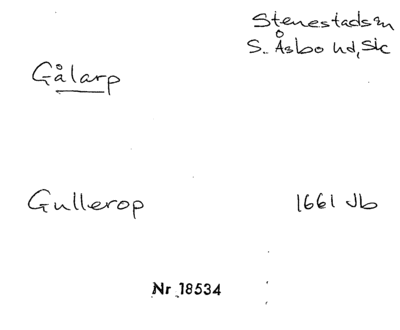 Stenestads sn
S. Åsbo hd, Sk
Gålarp
Gullerop 1661 Jb
Nr 18534